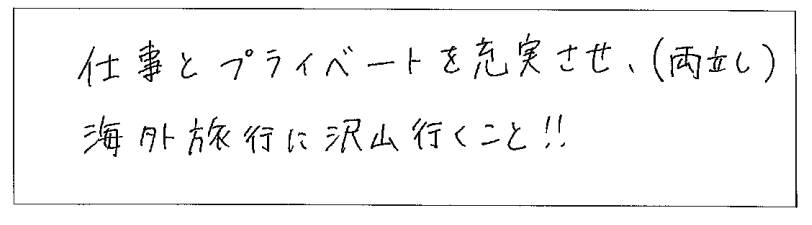 仕事とプライベートを充実させ、(両立し)
海外旅行に沢山行くこと!!